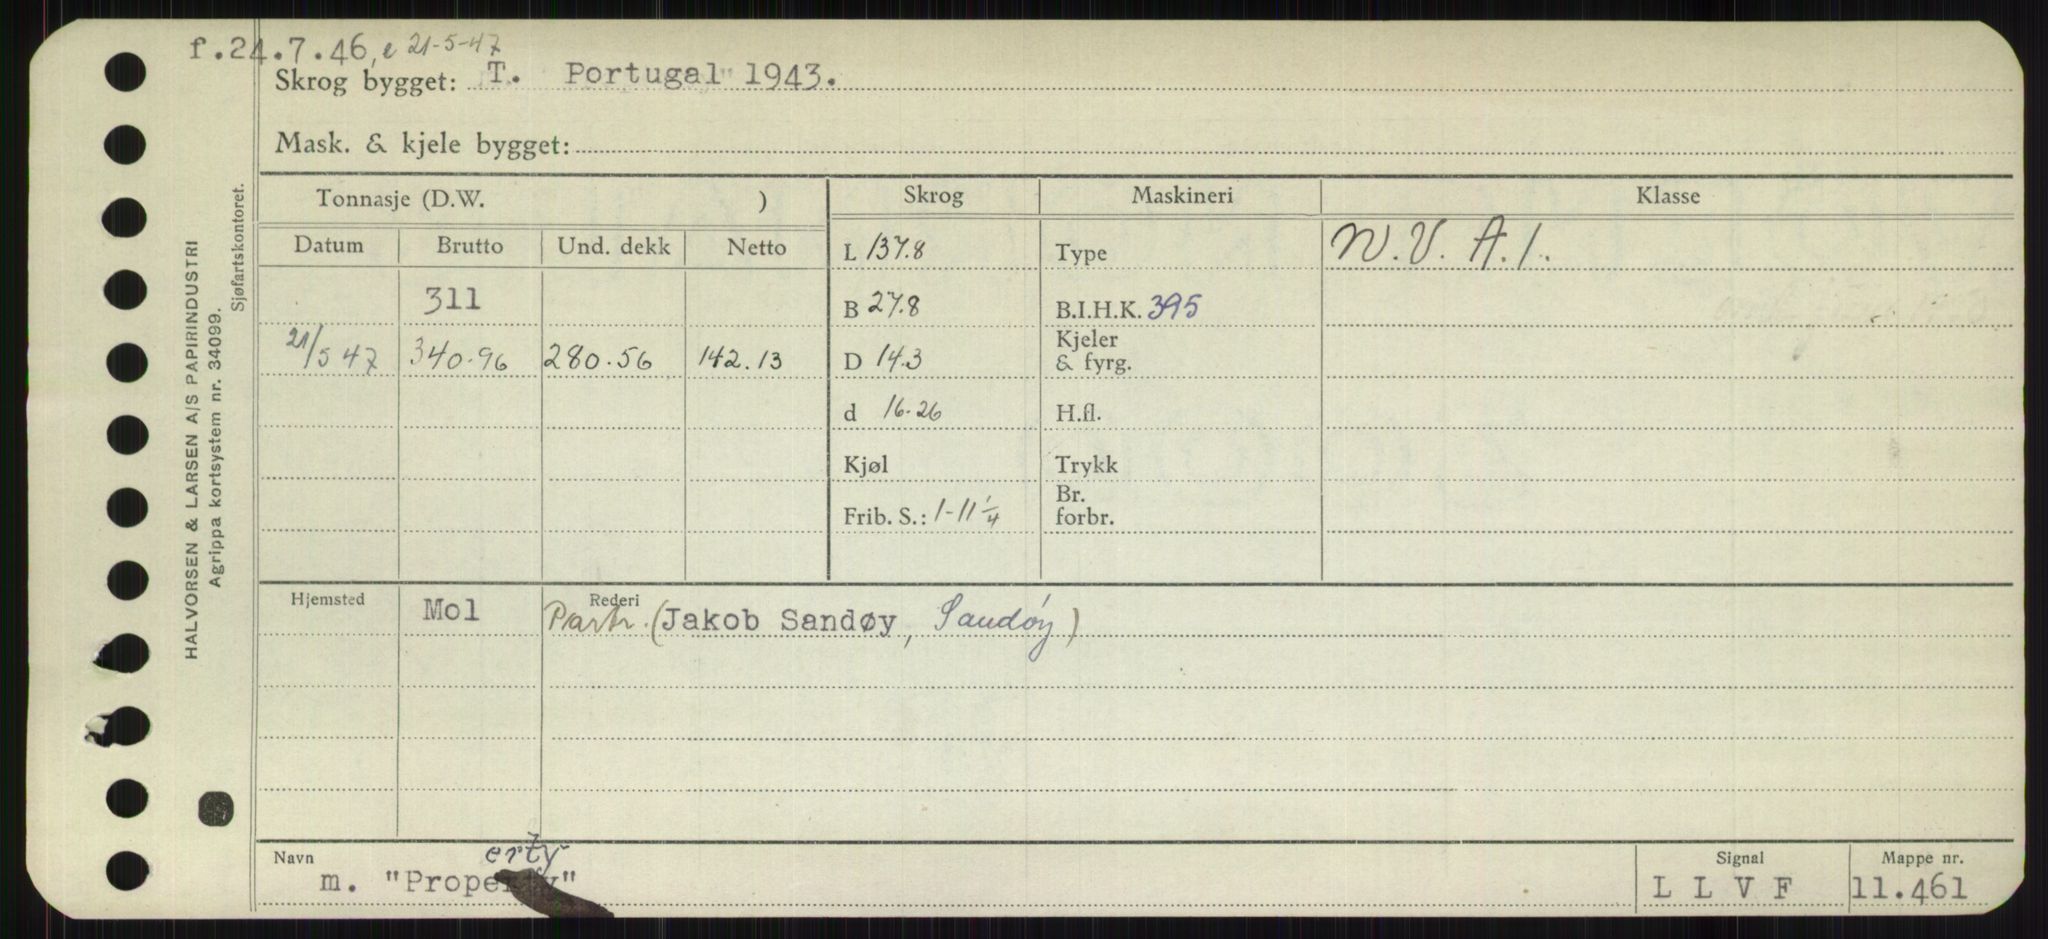 f.24.7.46, e 21-5-47
Skrog bygget: T. Portugal 1943.
Mask. & kjele bygget:
Tonnasje (D.W. )
Skrog
Maskineri
Klasse
Datum
Brutto
Und. dekk
Netto
L 137.8
Type
N.V. A.1.
311
B 27.8
B.I.H.K. 395
21/5 47
340.96
280.56
142.13
D 14.3
Kjeler
& fyrg.
d 16.26
H.fl.
Kjøl
Trykk
Frib. S.: 1-11 1/4
Br.
forbr.
Hjemsted
Mol
Rederi
Partr. (Jakob Sandøy, Sandøy)
Navn
erty
m. "Property"
Signal
L L V F
Mappe nr.
11.461
HALVORSEN & LARSEN A/S PAPIRINDUSTRI
Agrippa kortsystem nr. 34099.
Sjøfartskontoret.